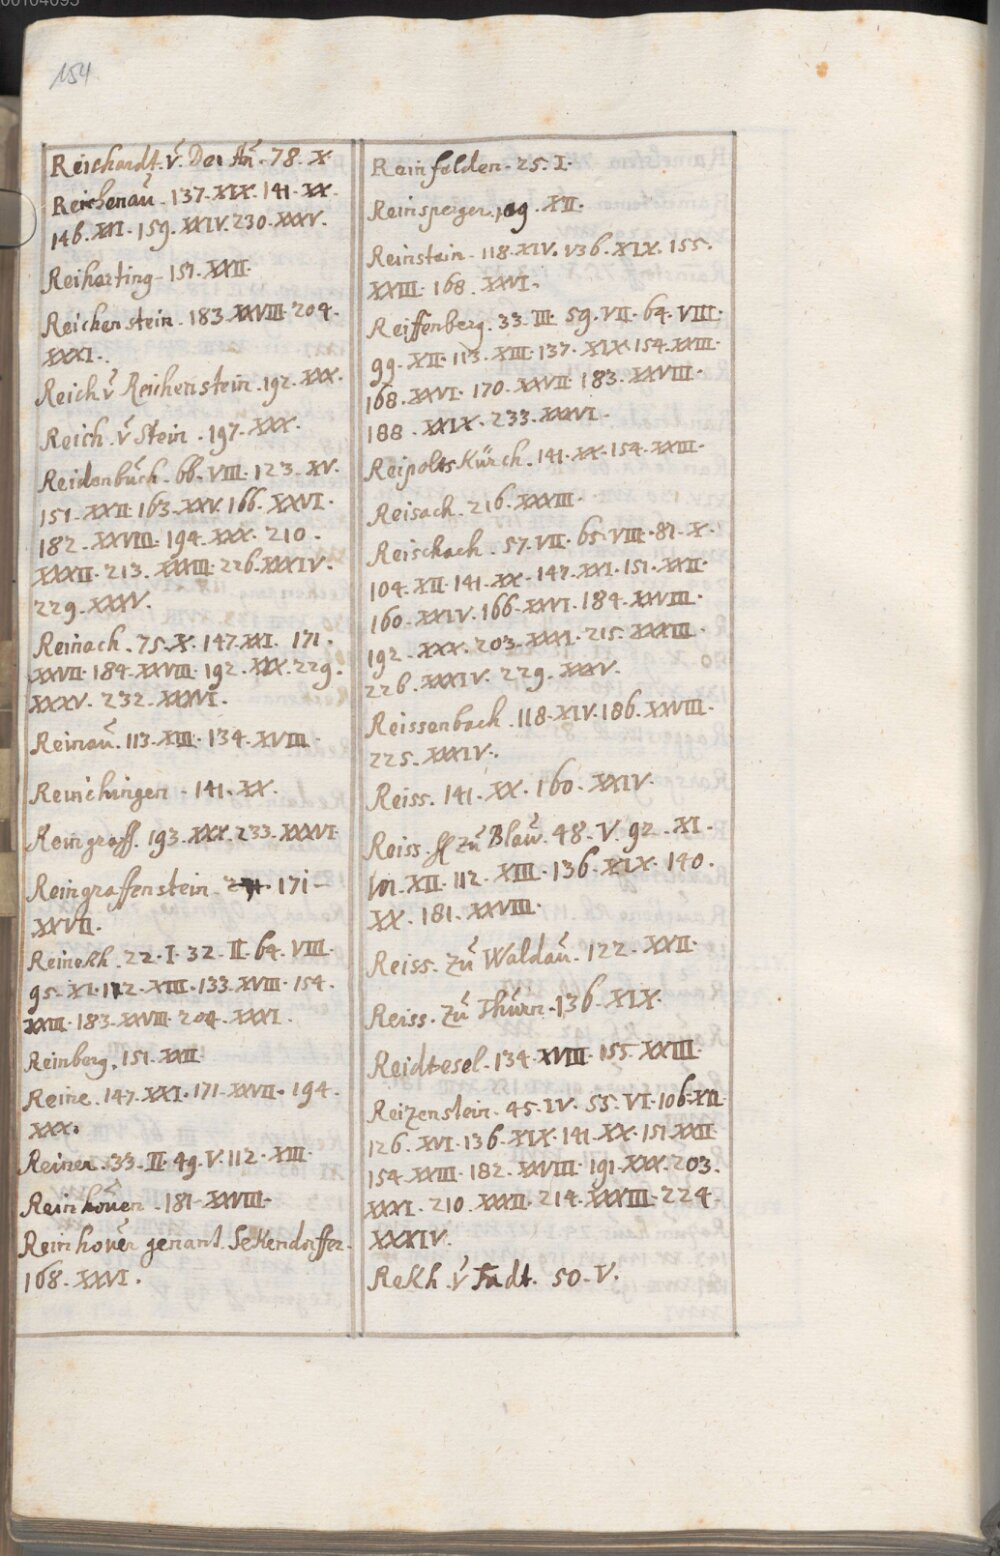 154
Reichardt. v̆. Der Aŭ. 78. X.
Reichenaŭ. 137. XIX. 141. XX.
146. XXI. 159. XXIV. 230. XXXV.
Reiharting. 151. XXII.
Reichenstein. 183. XXVIII. 204.
XXXI.
Reich v̆ Reichenstein. 192. XXX.
Reich. v̆ Stein. 197. XXX.
Reidenbŭch. 66. VIII. 123. XV.
151. XXII. 163. XXV. 166. XXVI.
182. XXVIII. 194. XXX. 210.
XXXII. 213. XXXIII. 226. XXXIV.
229. XXXV.
Reinach. 75. X. 147. XXI. 171.
XXVII. 184. XXVIII. 192. XXX. 229.
XXXV. 232. XXXVI.
Reinaŭ. 113. XIII. 134. XVIII.
Reinchingen. 141. XX.
Reingraff. 193. XXX. 233. XXXVI.
Reingraffenstein. 171.
XXVII.
Reinekh. 22. I. 32. II. 64. VIII.
95. XI. 112. XIII. 133. XVIII. 154.
XXIII. 183. XXVIII. 204. XXXI.
Reinberg. 151. XXII.
Reine. 147. XXI. 171. XXVII. 194.
XXX.
Reiner. 33. II. 49. V. 112. XIII.
Reinhöven. 181. XXVIII.
Reinhovĕr genant. Sekendorffer.
168. XXVI.
Reinfelden. 25. I.
Reinsperger. 109. XII.
Reinstein. 118. XIV. 136. XIX. 155.
XXIII. 168. XXVI.
Reiffenberg. 33. III. 59. VII. 64. VIII.
99. XII. 113. XIII. 137. XIX. 154. XXIII.
168. XXVI. 170. XXVII. 183. XXVIII.
188. XXIX. 233. XXXVI.
Reipolts Kürch. 141. XX. 154. XXIII.
Reisach. 216. XXXIII.
Reischach. 57. VII. 65. VIII. 81. X.
104. XII. 141. XX. 147. XXI. 151. XXII.
160. XXIV. 166. XXVI. 184. XXVIII.
192. XXX. 203. XXXI. 215. XXXIII.
226. XXXIV. 229. XXXV.
Reissenbach. 118. XIV. 186. XXVIII.
225. XXXIV.
Reiss. 141. XX. 160. XXIV.
Reiss. zŭ Blaŭ. 48. V. 92. XI.
101. XII. 112. XIII. 136. XIX. 140.
XX. 181. XXVIII.
Reiss. zŭ Waldaŭ. 122. XXII.
Reiss. zŭ Thŭrn. 136. XIX.
Reidtesel. 134. XVIII. 155. XXIII.
Reizenstein. 45. IV. 55. VI. 106. XII.
126. XVI. 136. XIX. 141. XX. 151. XXII.
154. XXIII. 182. XXVIII. 191. XXX. 203.
XXXI. 210. XXXII. 214. XXXIII. 224.
XXXIV.
Rekh. v̆ 50. V.